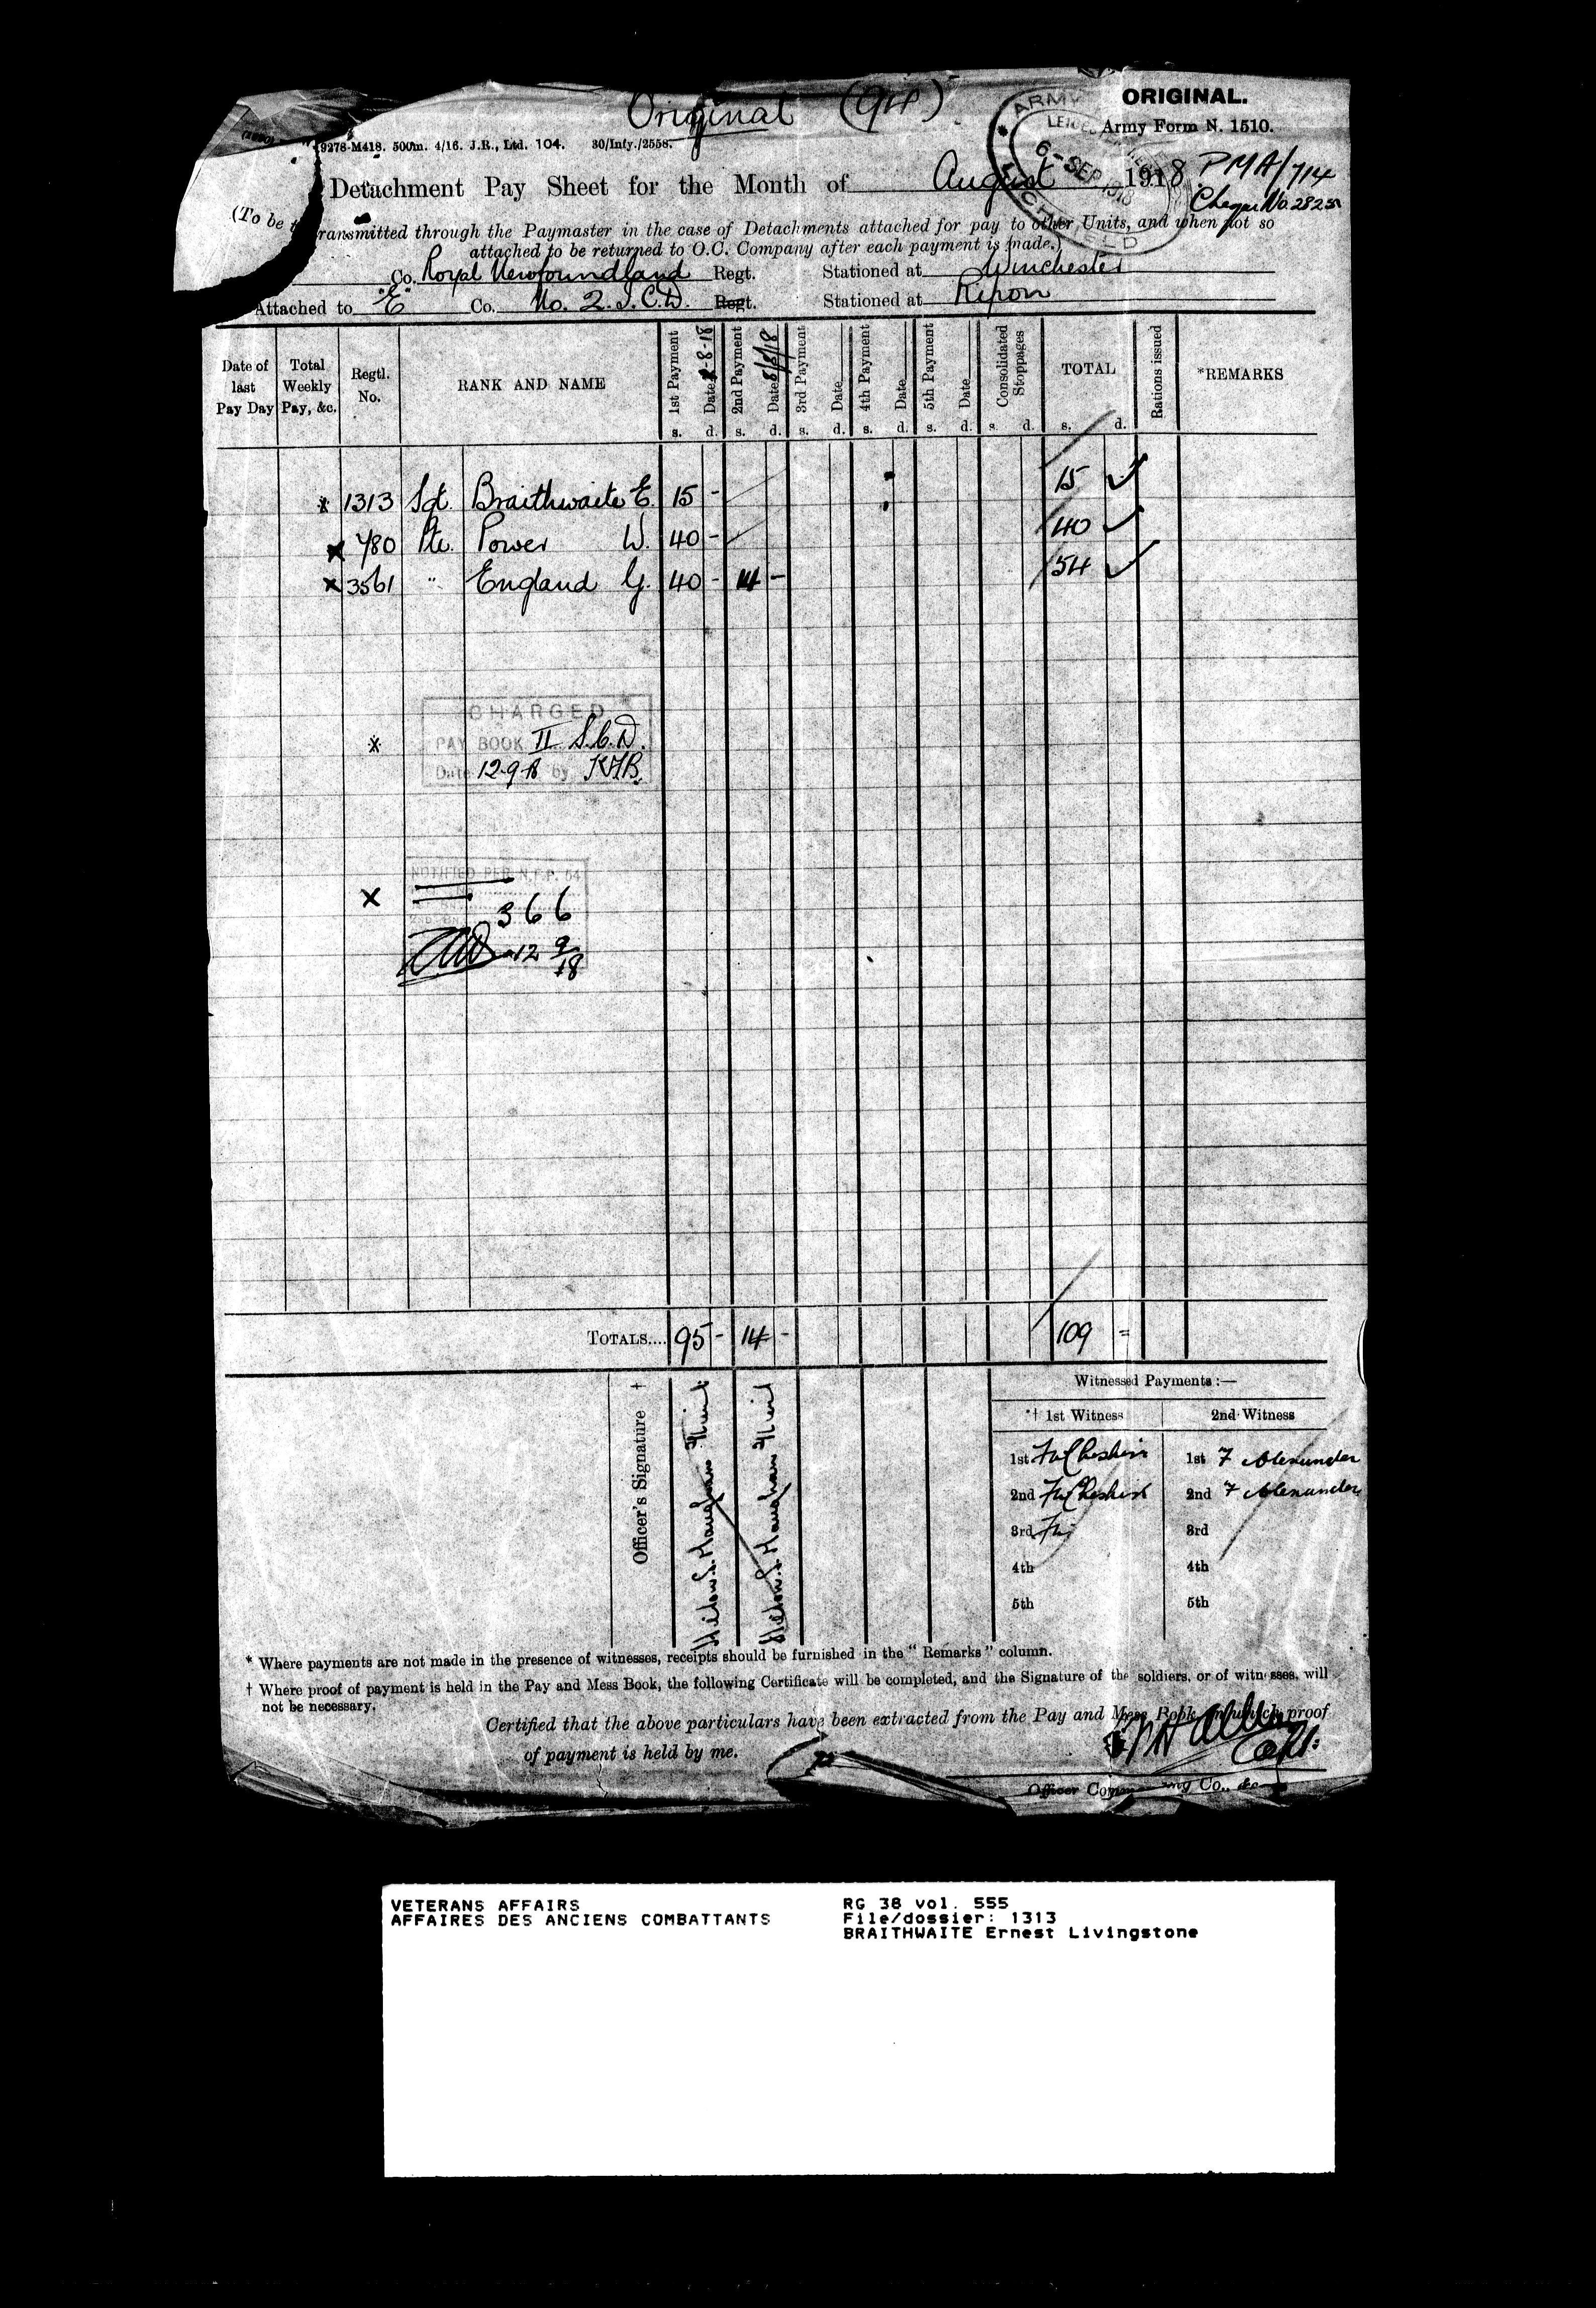 Original (9H)
ORIGINAL.
Army Form N. 1510.
9278-M418. 500m. 4/16. J.R., Ltd. 104. 30/Infy./2558.
ARMY
6-SEP 1918
LICHFIELD
Detachment Pay Sheet for the Month of August 1918
PMA/714
Cheque No.
(To be transmitted through the Paymaster in the case of Detachments attached for pay to other Units, and when not so
attached to be returned to O.C. Company after each payment is made.)
Co. Royal Newfoundland Regt. Stationed at Winchester
Attached to "E" Co. No. 2. S.C.D. Regt. Stationed at Ripon
Date of last Pay Day Total Weekly Pay, &c. Regtl. No. RANK AND NAME 1st Payment Date -8-18 2nd Payment Date 8/8/18 3rd Payment Date 4th Payment Date 5th Payment Date Consolidated Stoppages TOTAL Rations issued *REMARKS
s. d. s. d. s. d. s. d. s. d. s. d. s. d.
x 1313 Sgt. Braithwaite E. 15 - 15 ✓
x 780 Pte. Power W. 40 - 40 ✓
x 3561 " England G. 40 - 14 - 54 ✓
CHARGED
x PAY BOOK II S.C.D.
Date 12-9-18 by KFB.
NOTIFIED PER N.F.P. 64
x 366
12 9/18
TOTALS.... 95 - 14 - 109 =
Witnessed Payments:—
Officer's Signature †
*† 1st Witness 2nd Witness
1st FW Cheshire 1st F Alexander
2nd FW Cheshire 2nd F Alexander
3rd FW 3rd
4th 4th
5th 5th
* Where payments are not made in the presence of witnesses, receipts should be furnished in the "Remarks" column.
† Where proof of payment is held in the Pay and Mess Book, the following Certificate will be completed, and the Signature of the soldiers, or of witnesses, will
not be necessary.
Certified that the above particulars have been extracted from the Pay and Mess Book in which proof
of payment is held by me.
Capt:
Officer Commanding Co., &c.
VETERANS AFFAIRS
AFFAIRES DES ANCIENS COMBATTANTS
RG 38 vol. 555
File/dossier: 1313
BRAITHWAITE Ernest Livingstone